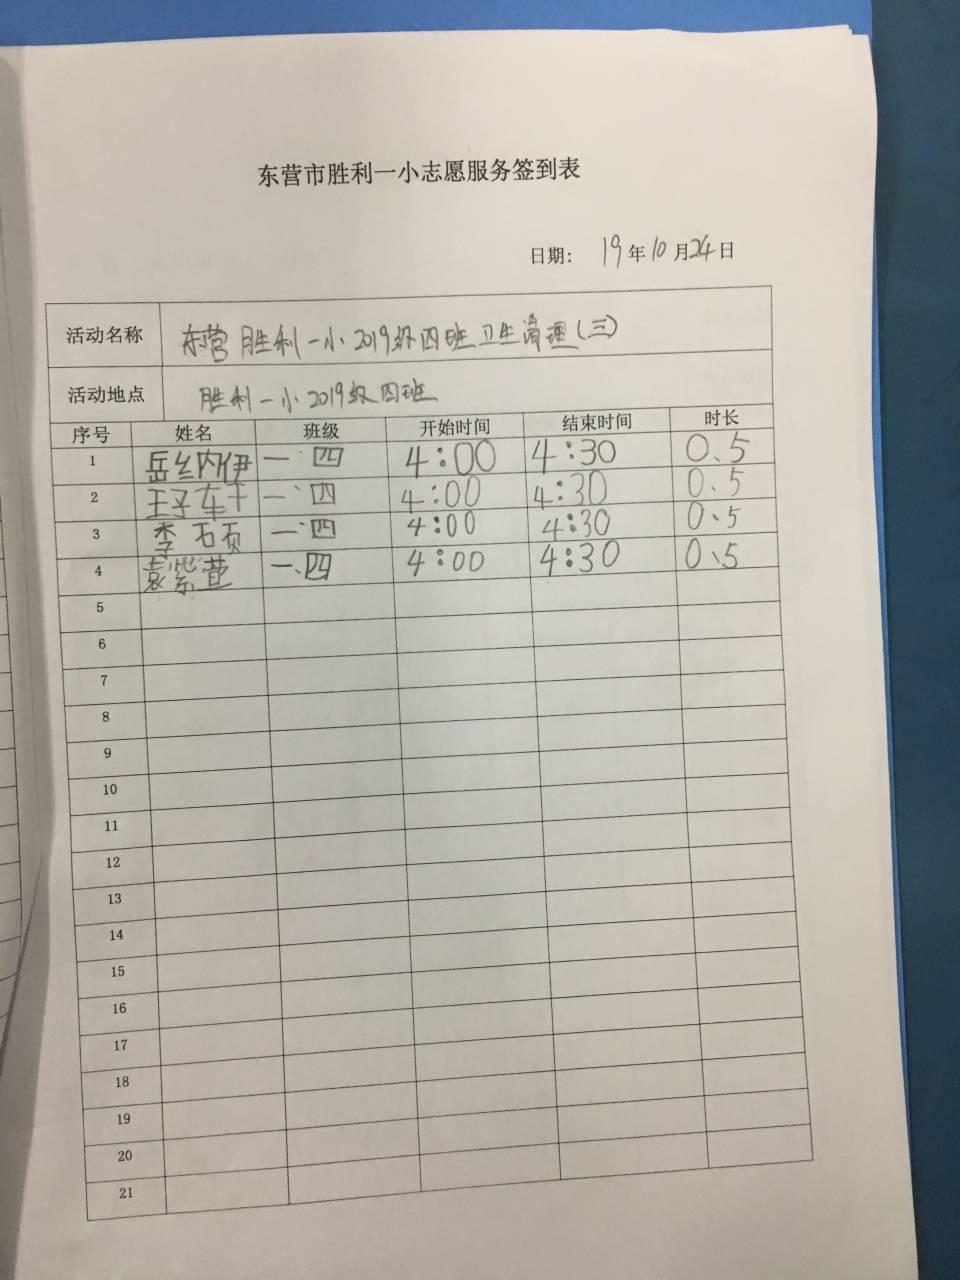 东营市胜利一小志愿服务签到表
日期: 19年10月24日
活动名称 东营胜利一小2019级四班卫生清理(三)
活动地点 胜利一小2019级四班
序号 姓名 班级 开始时间 结束时间 时长
1 岳纳伊 一、四 4:00 4:30 0.5
2 王子轩 一、四 4:00 4:30 0.5
3 李硕 一、四 4:00 4:30 0.5
4 袁紫萱 一、四 4:00 4:30 0.5
5
6
7
8
9
10
11
12
13
14
15
16
17
18
19
20
21